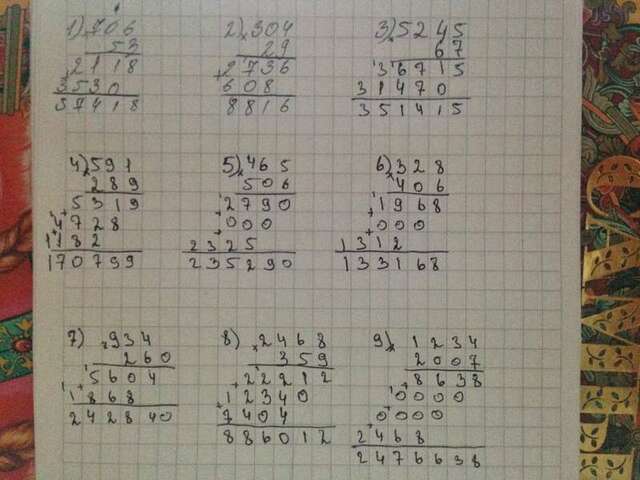 1) × 706
53
+ 2118
3530
37418
2) × 304
29
+ 2736
608
8816
3) × 5245
67
+ 36715
31470
351415
4) × 591
289
5319
+ 4728
1182
170799
5) × 465
506
2790
+ 000
2325
235290
6) × 328
406
1968
+ 000
1312
133168
7) × 934
260
+ 5604
1868
242840
8) × 2468
359
22212
+ 12340
7404
886012
9) × 1234
2007
8638
+ 0000
0000
2468
2476638